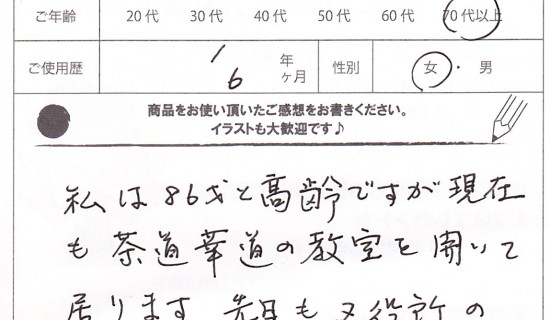 ご年齢 20代 30代 40代 50代 60代 70代以上
ご使用歴 1年 6ヶ月 性別 女・男
商品をお使い頂いたご感想をお書きください。
イラストも大歓迎です♪
私は86才と高齢ですが現在
も茶道華道の教室を開いて
居ります 先日も又役所の